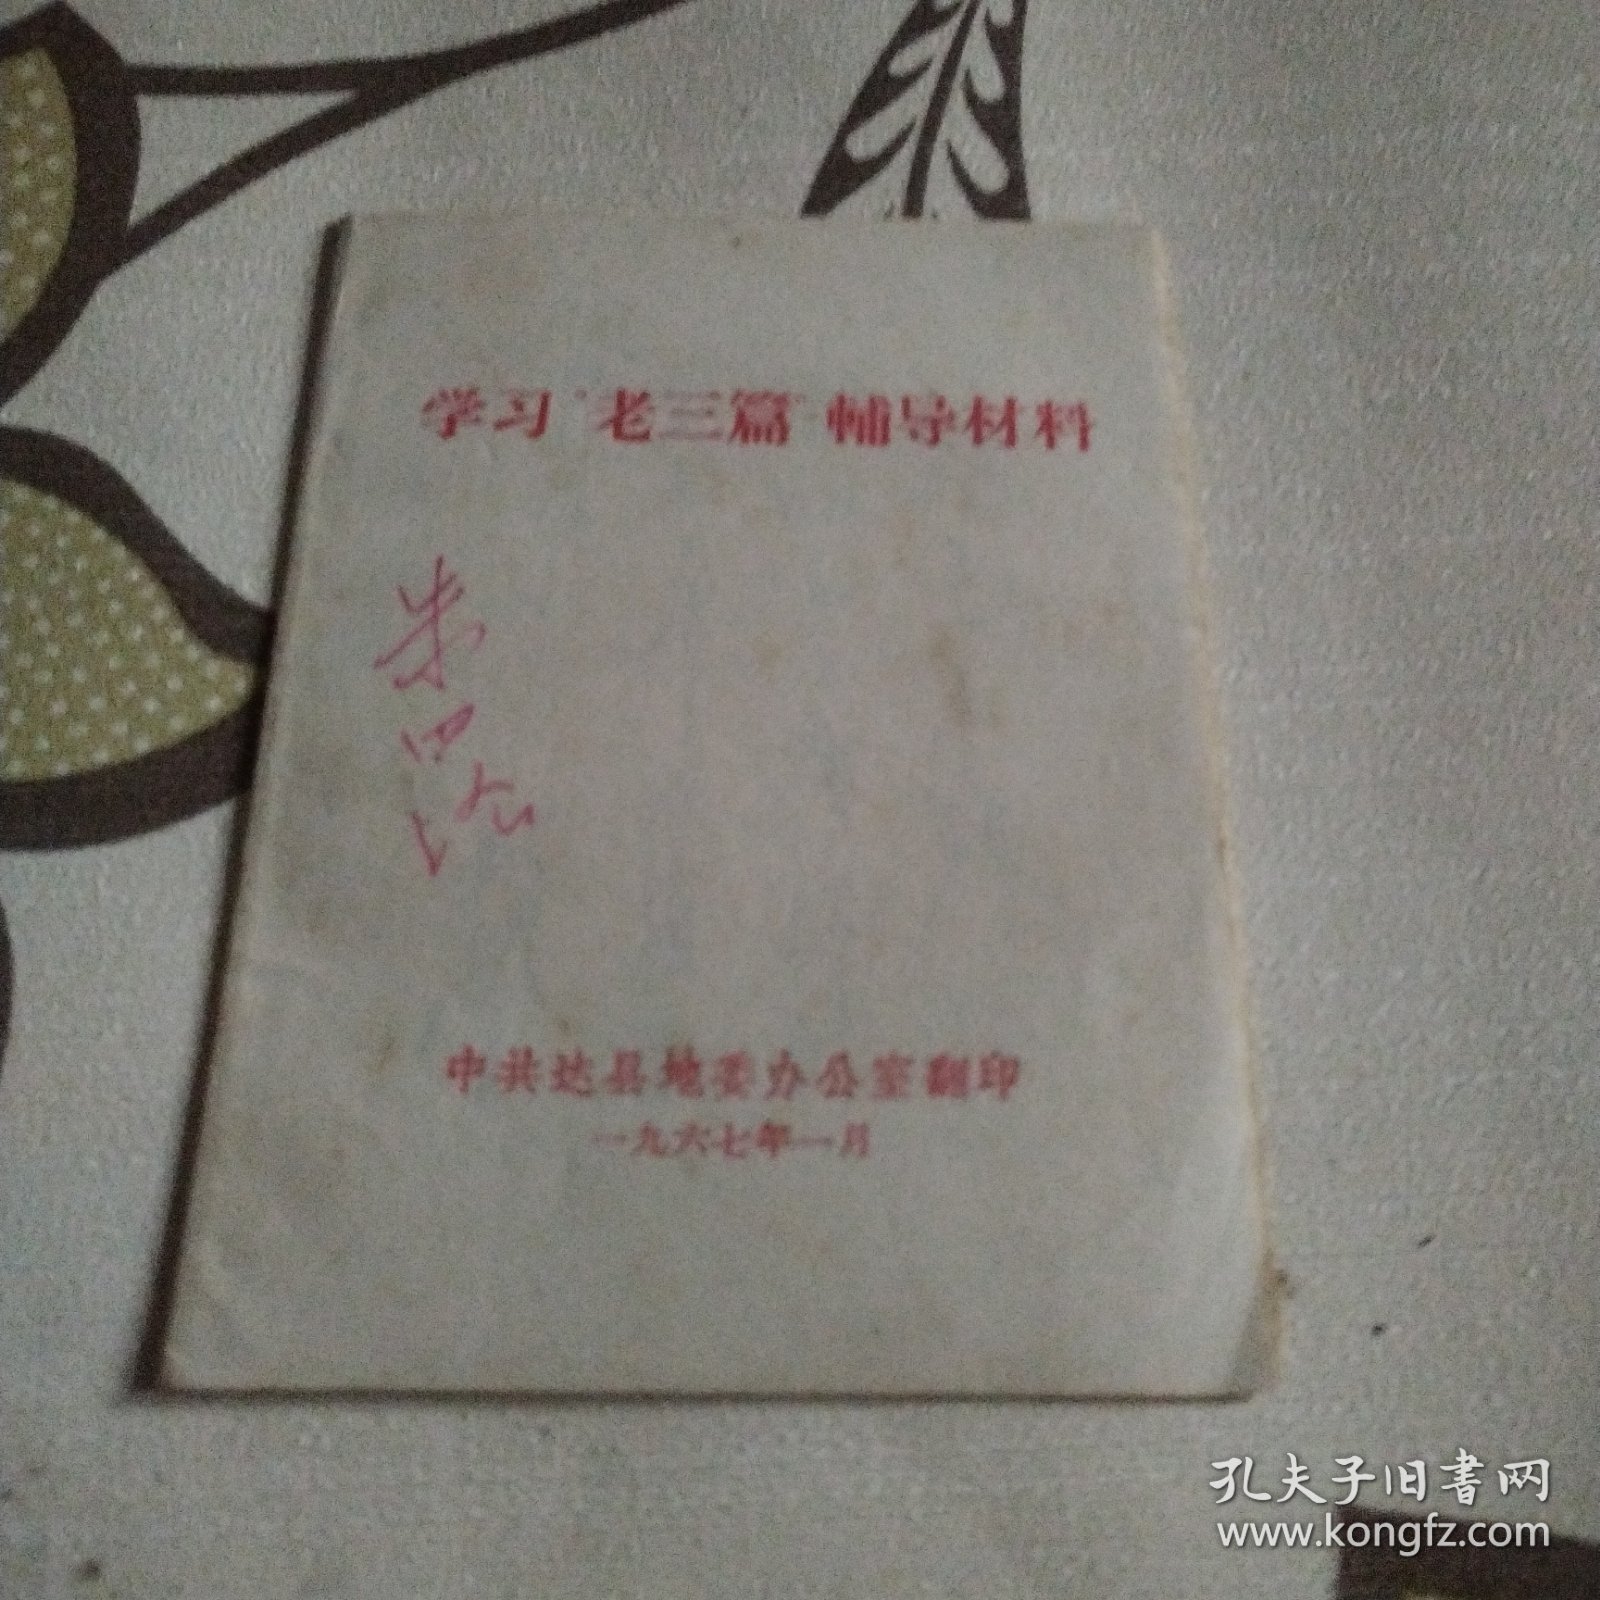 学习“老三篇”輔导材料
中共达县地委办公室翻印
一九六七年一月
孔夫子旧書网
www.kongfz.com